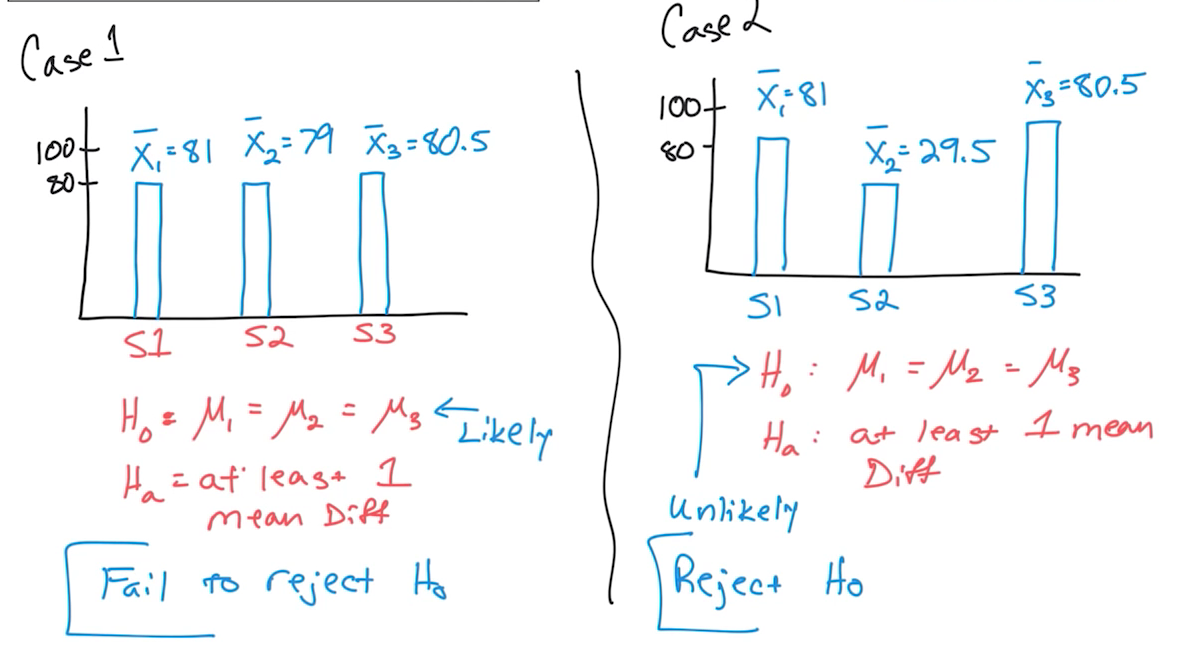 Case 1
100
80
X̄₁=81
X̄₂=79
X̄₃=80.5
S1
S2
S3
H₀ = μ₁ = μ₂ = μ₃
Likely
Hₐ = at least 1
mean Diff
Fail to reject H₀
Case 2
100
80
X̄₁=81
X̄₂=29.5
X̄₃=80.5
S1
S2
S3
H₀ : μ₁ = μ₂ = μ₃
Hₐ : at least 1 mean
Diff
Unlikely
Reject H₀